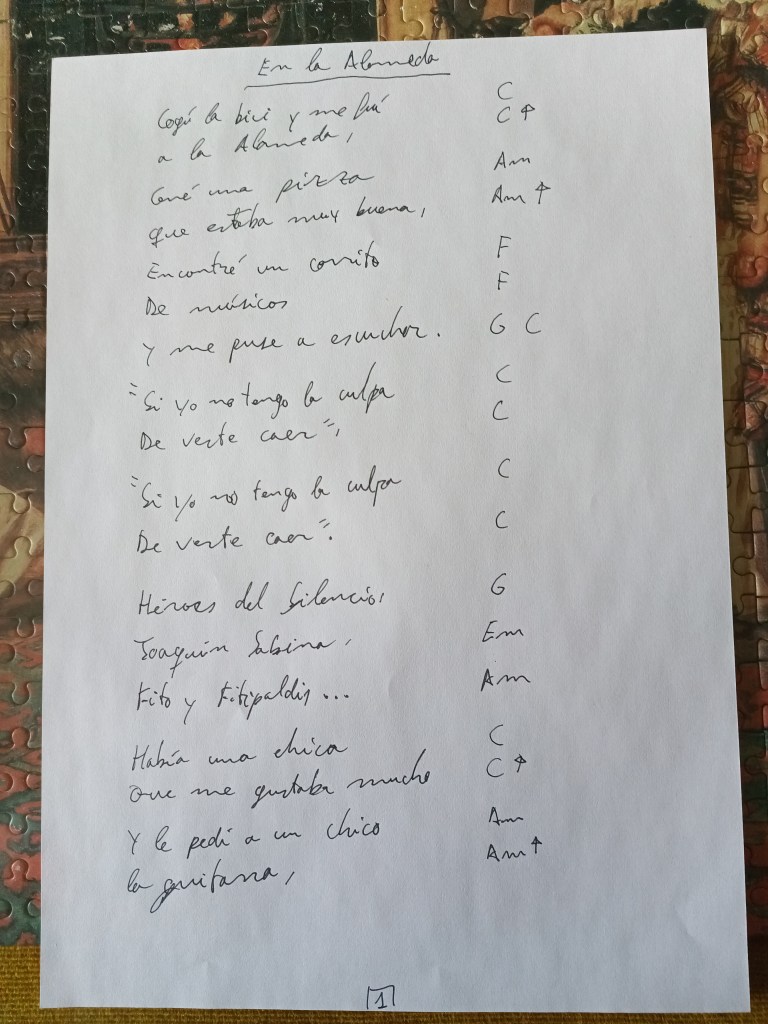 En la Alameda
Cogí la bici y me fui C
a la Alameda, C↑
Cené una pizza Am
que estaba muy buena, Am↑
Encontré un corrito F
De músicos F
Y me puse a escuchar. G C
"Si yo no tengo la culpa C
De verte caer", C
"Si yo no tengo la culpa C
De verte caer". C
Héroes del Silencio, G
Joaquín Sabina, Em
Fito y Fitipaldis... Am
Había una chica C
Que me gustaba mucho C↑
Y le pedí a un chico Am
la guitarra, Am↑
1